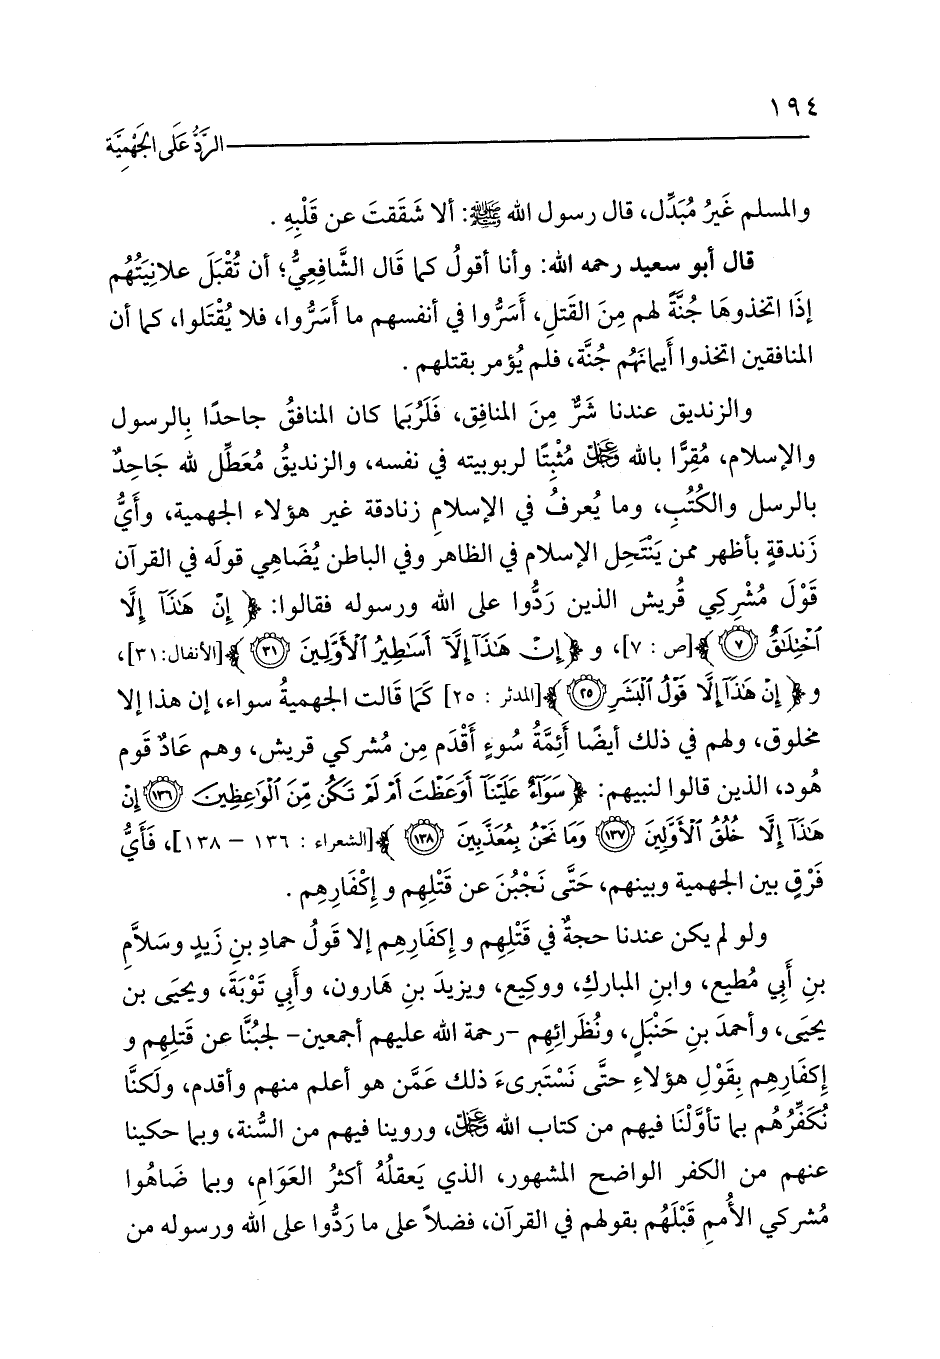 ١٩٤
الرَّدُّ عَلَى الجَهْمِيَّة
والمسلم غَيرُ مُبَدِّل، قال رسول الله ﷺ: ألا شَقَقتَ عن قَلْبِهِ .
قال أبو سعيد رحمه الله: وأنا أقولُ كما قَال الشَّافِعِيُّ؛ أن تُقْبَلَ علانِيَتُهُم
إذَا اتخذوهَا جُنَّةً لهم مِنَ القَتلِ، أَسَرُّوا في أنفسهم ما أَسَرُّوا، فلا يُقْتَلوا، كما أن
المنافقين اتخذوا أَيمانَهُم جُنَّة، فلم يُؤمر بقتلهم .
والزنديق عندنا شَرٌّ مِنَ المنافِق، فَلَرُبَما كان المنافقُ جاحدًا بِالرسول
والإسلام، مُقِرًّا بالله ﷿ مُثْبِتًا لربوبيته في نفسه، والزنديقُ مُعَطِّل لله جَاحِدٌ
بالرسل والكُتُبِ، وما يُعرفُ في الإسلامِ زنادقة غير هؤلاء الجهمية، وأَيُّ
زَندقةٍ بأظهر ممن يَنْتَحِل الإسلام في الظاهر وفي الباطن يُضَاهِي قولَه في القرآن
قَوْلَ مُشْرِكِي قُريش الذين رَدُّوا على الله ورسوله فقالوا: ﴿ إِنْ هَٰذَآ إِلَّا
ٱخْتِلَٰقٌ ٧ ﴾[ص : ٧]، و ﴿ إِنْ هَٰذَآ إِلَّآ أَسَٰطِيرُ ٱلْأَوَّلِينَ ٣١ ﴾[الأنفال:٣١]،
و﴿ إِنْ هَٰذَآ إِلَّا قَوْلُ ٱلْبَشَرِ ٢٥ ﴾[المدثر : ٢٥] كَمَا قَالت الجهميةُ سواء، إن هذا إلا
مخلوق، ولهم في ذلك أيضًا أَئِمَّةُ سُوءٍ أَقْدَم مِن مُشركي قريش، وهم عَادٌ قَوم
هُود، الذين قالوا لنبيهم: ﴿ سَوَآءٌ عَلَيْنَآ أَوَعَظْتَ أَمْ لَمْ تَكُن مِّنَ ٱلْوَٰعِظِينَ ١٣٦ إِنْ
هَٰذَآ إِلَّا خُلُقُ ٱلْأَوَّلِينَ ١٣٧ وَمَا نَحْنُ بِمُعَذَّبِينَ ١٣٨ ﴾[الشعراء : ١٣٦ – ١٣٨]، فَأَيُّ
فَرْقٍ بين الجهمية وبينهم، حَتَّى نَجْبُنَ عن قَتْلِهِم و إكْفَارِهِم .
ولو لم يكن عندنا حجةٌ في قَتْلِهم و إكفارِهِم إلا قَولُ حمادِ بنِ زَيدٍ وسَلاَّمِ
بنِ أَبي مُطيع، وابنِ المباركِ، ووكِيع، ويزيدَ بنِ هَارون، وأَبي تَوْبَةَ، ويحيَى بن
يحيَى، وأحمدَ بنِ حَنْبَلٍ، ونُظَرائِهم -رحمة الله عليهم أجمعين- لجبُنَّا عن قَتلِهم و
إكفَارِهِم بِقَوْلِ هؤلاءِ حتَّى نَسْتَبرىءَ ذلك عَمَّن هو أعلم منهم وأقدم، ولَكنَّا
نُكَفِّرُهُم بما تأوَّلْنَا فيهم من كتاب الله ﷿، وروينا فيهم من السُّنة، وبما حكينا
عنهم من الكفر الواضح المشهور، الذي يَعقلُهُ أكثرُ العَوَامِ، وبما ضَاهُوا
مُشركي الأُممِ قَبْلَهُم بقولهم في القرآن، فضلاً على ما رَدُّوا على الله ورسوله من